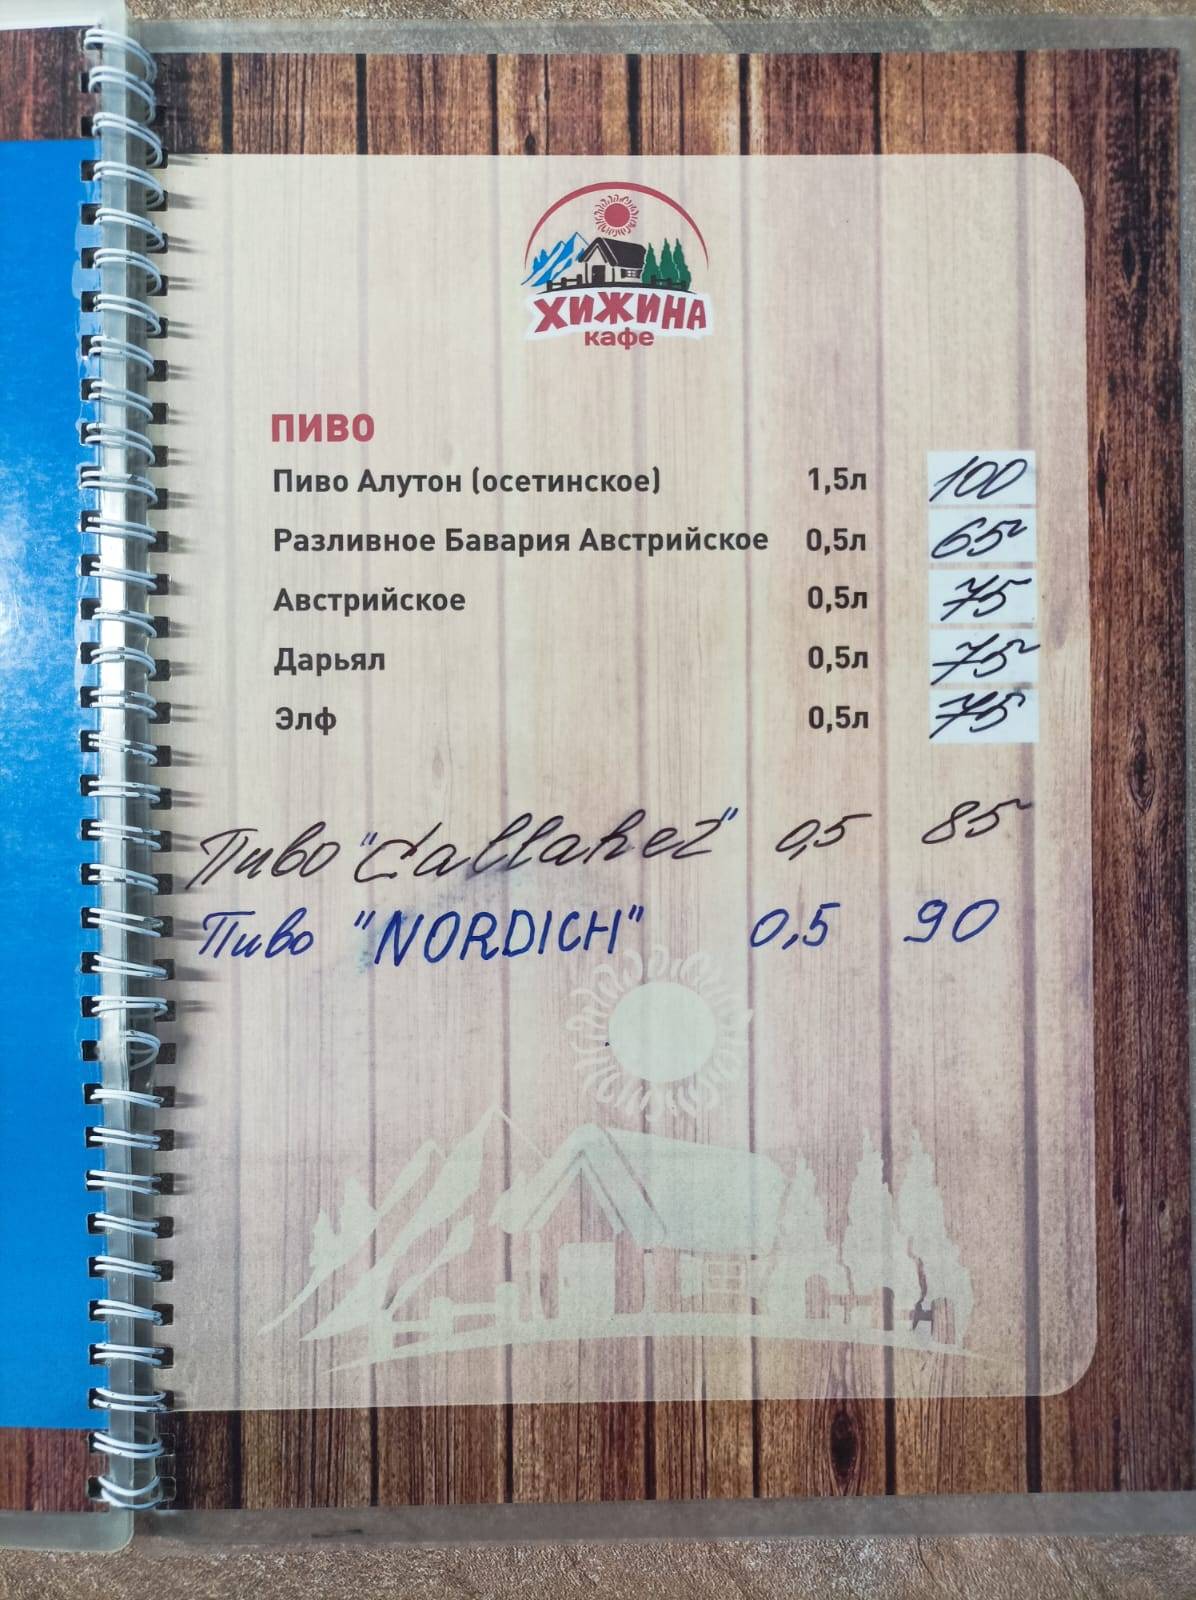 ХИЖИНА
кафе
ПИВО
Пиво Алутон (осетинское) 1,5л 100
Разливное Бавария Австрийское 0,5л 65
Австрийское 0,5л 75
Дарьял 0,5л 75
Элф 0,5л 75
Пиво "Callahez" 0,5 85
Пиво "NORDICH" 0,5 90